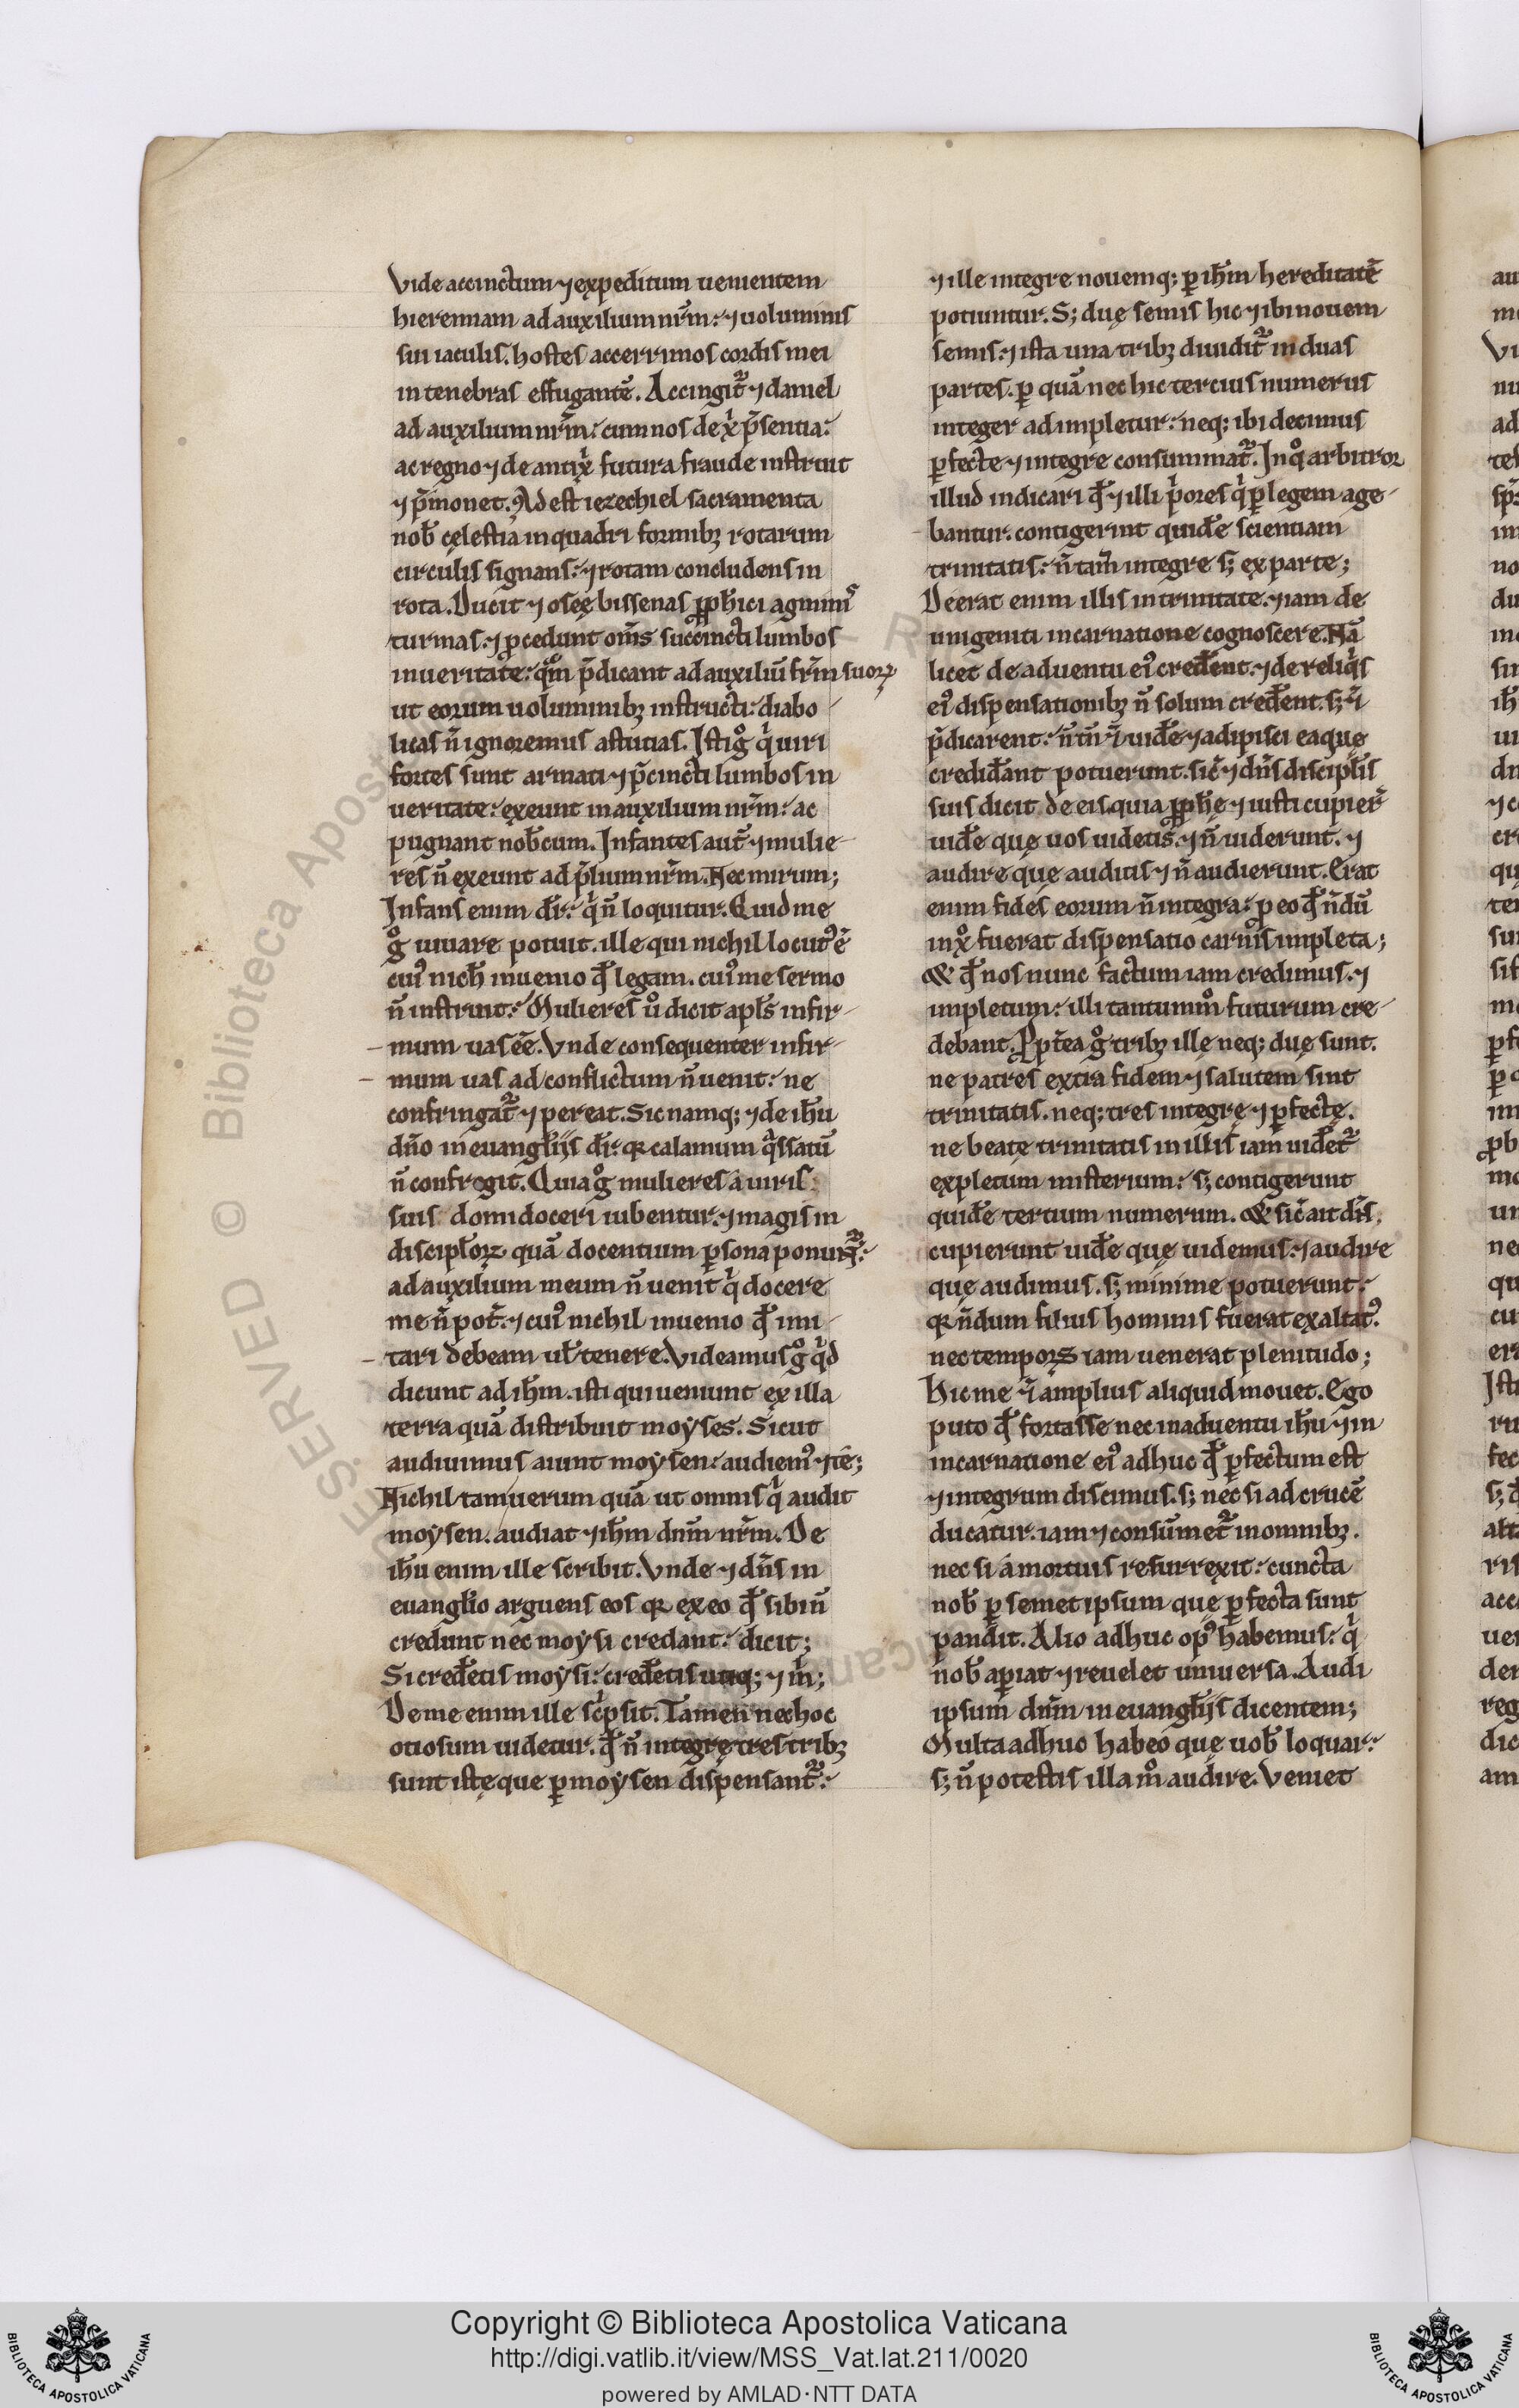 Vide accinctum ⁊ expeditum uenientem
hieremiam ad auxilium nr̄m: ⁊ uoluminis
sui iaculis. hostes accerrimos cordis mei
in tenebras effugantē. Accingit᷑ ⁊ daniel
ad auxilium nr̄m: cum nos de xp̄i p̄sentia:
ac regno ⁊ de antix̄ futura fraude instruit
⁊ p̄monet. Adest iezechiel sacramenta
nob̄ cęlestia in quadri formibꝫ rotarum
circulis signans: ⁊ rotam concludens in
rota. Ducit ⁊ oseę bissenas ꝓph̄ici agminis
turmas. ⁊ ꝓcedunt om̄s succincti lumbos
in ueritate: qm̄ p̄dicant ad auxiliū fr̄m suoꝝ
ut eorum uoluminibꝫ instructi: diabo
licas n̄ ignoremus astutias. Isti gͦ qͥ uiri
fortes sunt armati ⁊ p̄cincti lumbos in
ueritate: exeunt in auxilium nr̄m: ac
pugnant nob̄cum. Infantes aut̄ ⁊ mulie
res n̄ exeunt ad p̄lium nr̄m. Nec mirum;
Infans enim dr̄: qͥ n̄ loquitur. Quid me
gͦ iuuare potuit. ille qui nichil locutꝰ ē
cuiꝰ nich̄ inuenio qd̄ legam. cuiꝰ me sermo
n̄ instruit: Mulieres uͦ dicit apl̄s infir
mum uas eē. Vnde consequenter infir
mum uas ad conflictum n̄ uenit: ne
confringat᷑ ⁊ pereat. Sic namqꝫ ⁊ de ih̄u
dn̄o in euangl̄ijs dr̄: qꝛ calamum qͣssatū
n̄ confregit. Quia gͦ mulieres a uiris
suis domi doceri iubentur. ⁊ magis in
discipl̄oꝝ quā docentium ꝑsona ponunt᷑:
ad auxilium meum n̄ uenit qͥ docere
me n̄ pot̄. ⁊ cuiꝰ nichil inuenio qd̄ imi
tari debeam ul̄ tenere. Videamus gͦ qͥd
dicunt ad ih̄m. isti qui ueniunt ex illa
terra quā distribuit moẏses. Sicut
audiuimus aiunt moẏsen: audiemꝰ ⁊ te;
Nichil tam uerum quā ut omnis qͥ audit
moẏsen. audiat ⁊ ih̄m dnm̄ nr̄m. De
ih̄u enim ille scribit. Vnde ⁊ dn̄s in
euangl̄io arguens eos qꝛ ex eo qd̄ sibi n̄
credunt nec moẏsi credant: dicit;
Si cred̄etis moẏsi: cred̄etis utiqꝫ ⁊ m̄;
De me enim ille scͥpsit. Tamen nec hoc
otiosum uidetur. qd̄ n̄ integrę tres tribꝫ
sunt istę que ꝑ moẏsen dispensant᷑:
⁊ ille integre nouemqꝫ ꝑ ih̄m hereditatē
potiuntur. Sꝫ duę semis hic ⁊ ibi nouem
semis: ⁊ ista una tribꝫ diuidit᷑ in duas
partes. ꝑ quā nec hic tercius numerus
integer adimpletur: neqꝫ ibi decimus
ꝑfecte ⁊ integre consummat᷑. In qͦ arbitror
illud indicari qd̄ ⁊ illi pͥores qͥ ꝑ legem age
bantur. contigerint quid̄e scientiam
trinitatis: n̄ tam̄ integre sꝫ ex parte;
Deerat enim illis in trinitate. ⁊iam de
unigeniti incarnatione cognoscere. Nā
licet de aduentu eiꝰ cred̄ent. ⁊ de reliqͥs
eiꝰ dispensationibꝫ n̄ solum cred̄ent. sꝫ ⁊ī
p̄dicarent: n̄ tn̄ ⁊ī uid̄e ⁊ adipisci ea quę
credid̄ant potuerunt. sic̄ ⁊ dn̄s discipl̄is
suis dicit de eis. quia ꝓph̄ę ⁊ iusti cupier̄
uid̄e quę uos uidetis. ⁊ n̄ uiderunt. ⁊
audire quę auditis ⁊ n̄ audierunt. Erat
enim fides eorum n̄ integra: ꝓ eo qd̄ n̄dū
in xͦ fuerat dispensatio carnis impleta;
& qd̄ nos nunc factum iam credimus. ⁊
impletum: illi tantummͦ futurum cre
debant. Ppt̄ea gͦ tribꝫ illę neqꝫ duę sunt.
ne patres extra fidem ⁊ salutem sint
trinitatis. neqꝫ tres integrę ⁊ ꝑfectę.
ne beatę trinitatis in illis iam uid̄et᷑
expletum misterium: sꝫ contigerunt
quid̄e tertium numerum. & sic̄ ait dn̄s.
cupierunt uid̄e quę uidemus: ⁊ audire
quę audimus. sꝫ minime potuerunt:
qꝛ n̄dum filius hominis fuerat exaltatꝰ.
nec temporis iam uenerat plenitudo;
Hic me ⁊ī amplius aliquid mouet. Ego
puto qd̄ fortasse nec in aduentu ih̄u ⁊ in
incarnatione eiꝰ adhuc qd̄ ꝑfectum est
⁊ integrum discimus. sꝫ nec si ad crucē
ducatur. iam ⁊ consūmet᷑ in omnibꝫ.
nec si a mortuis resurrexit: cuncta
nob̄ ꝑ semet ipsum quę ꝑfecta sunt
pandit. Alio adhuc opꝰ habemus: qͥ
nob̄ aꝑiat ⁊ reuelet uniuersa. Audi
ipsum dnm̄ in euangl̄ijs dicentem;
Multa adhuc habeo quę uob̄ loquar:
sꝫ n̄ potestis illa mͦ audire. Veniet
Copyright © Biblioteca Apostolica Vaticana
http://digi.vatlib.it/view/MSS_Vat.lat.211/0020
powered by AMLAD·NTT DATA